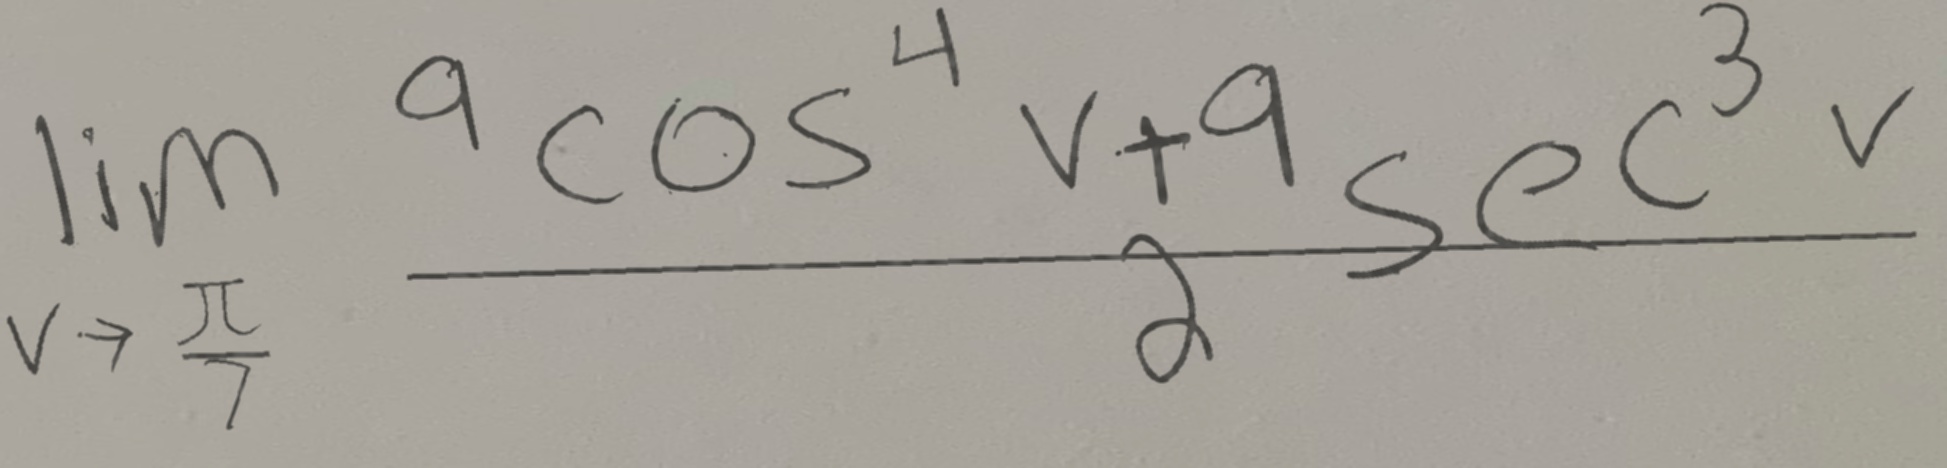 \lim_{v \to \frac{\pi}{7}} \frac{9\cos^4 v + 9\sec^3 v}{2}